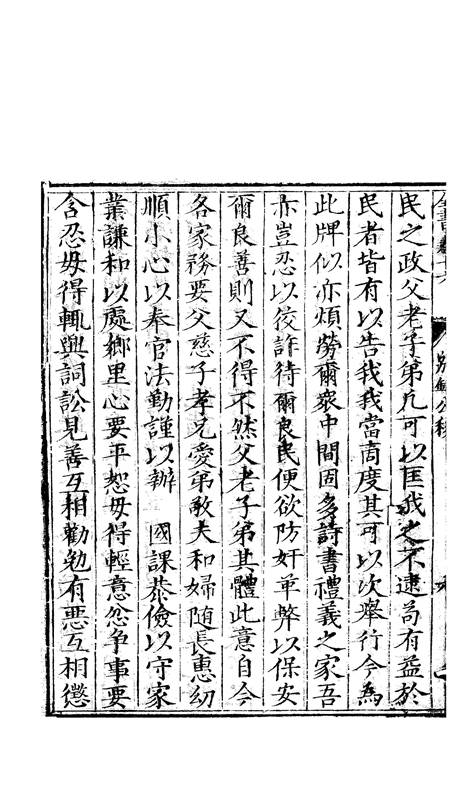 民之政父老子弟凡可以匡我之不逮苟有益於
民者皆有以告我我當商度其可以次舉行今為
此牌似亦煩勞爾衆中間固多詩書禮義之家吾
亦豈忍以狡詐待爾良民便欲防奸革弊以保安
爾良善則又不得不然父老子弟其體此意自今
各家務要父慈子孝兄愛弟敬夫和婦随長惠幼
順小心以奉官法勤謹以辦 國課恭儉以守家
業謙和以處鄉里心要平恕毋得輕意忿争事要
含忍毋得輒興詞訟見善互相勸勉有惡互相懲